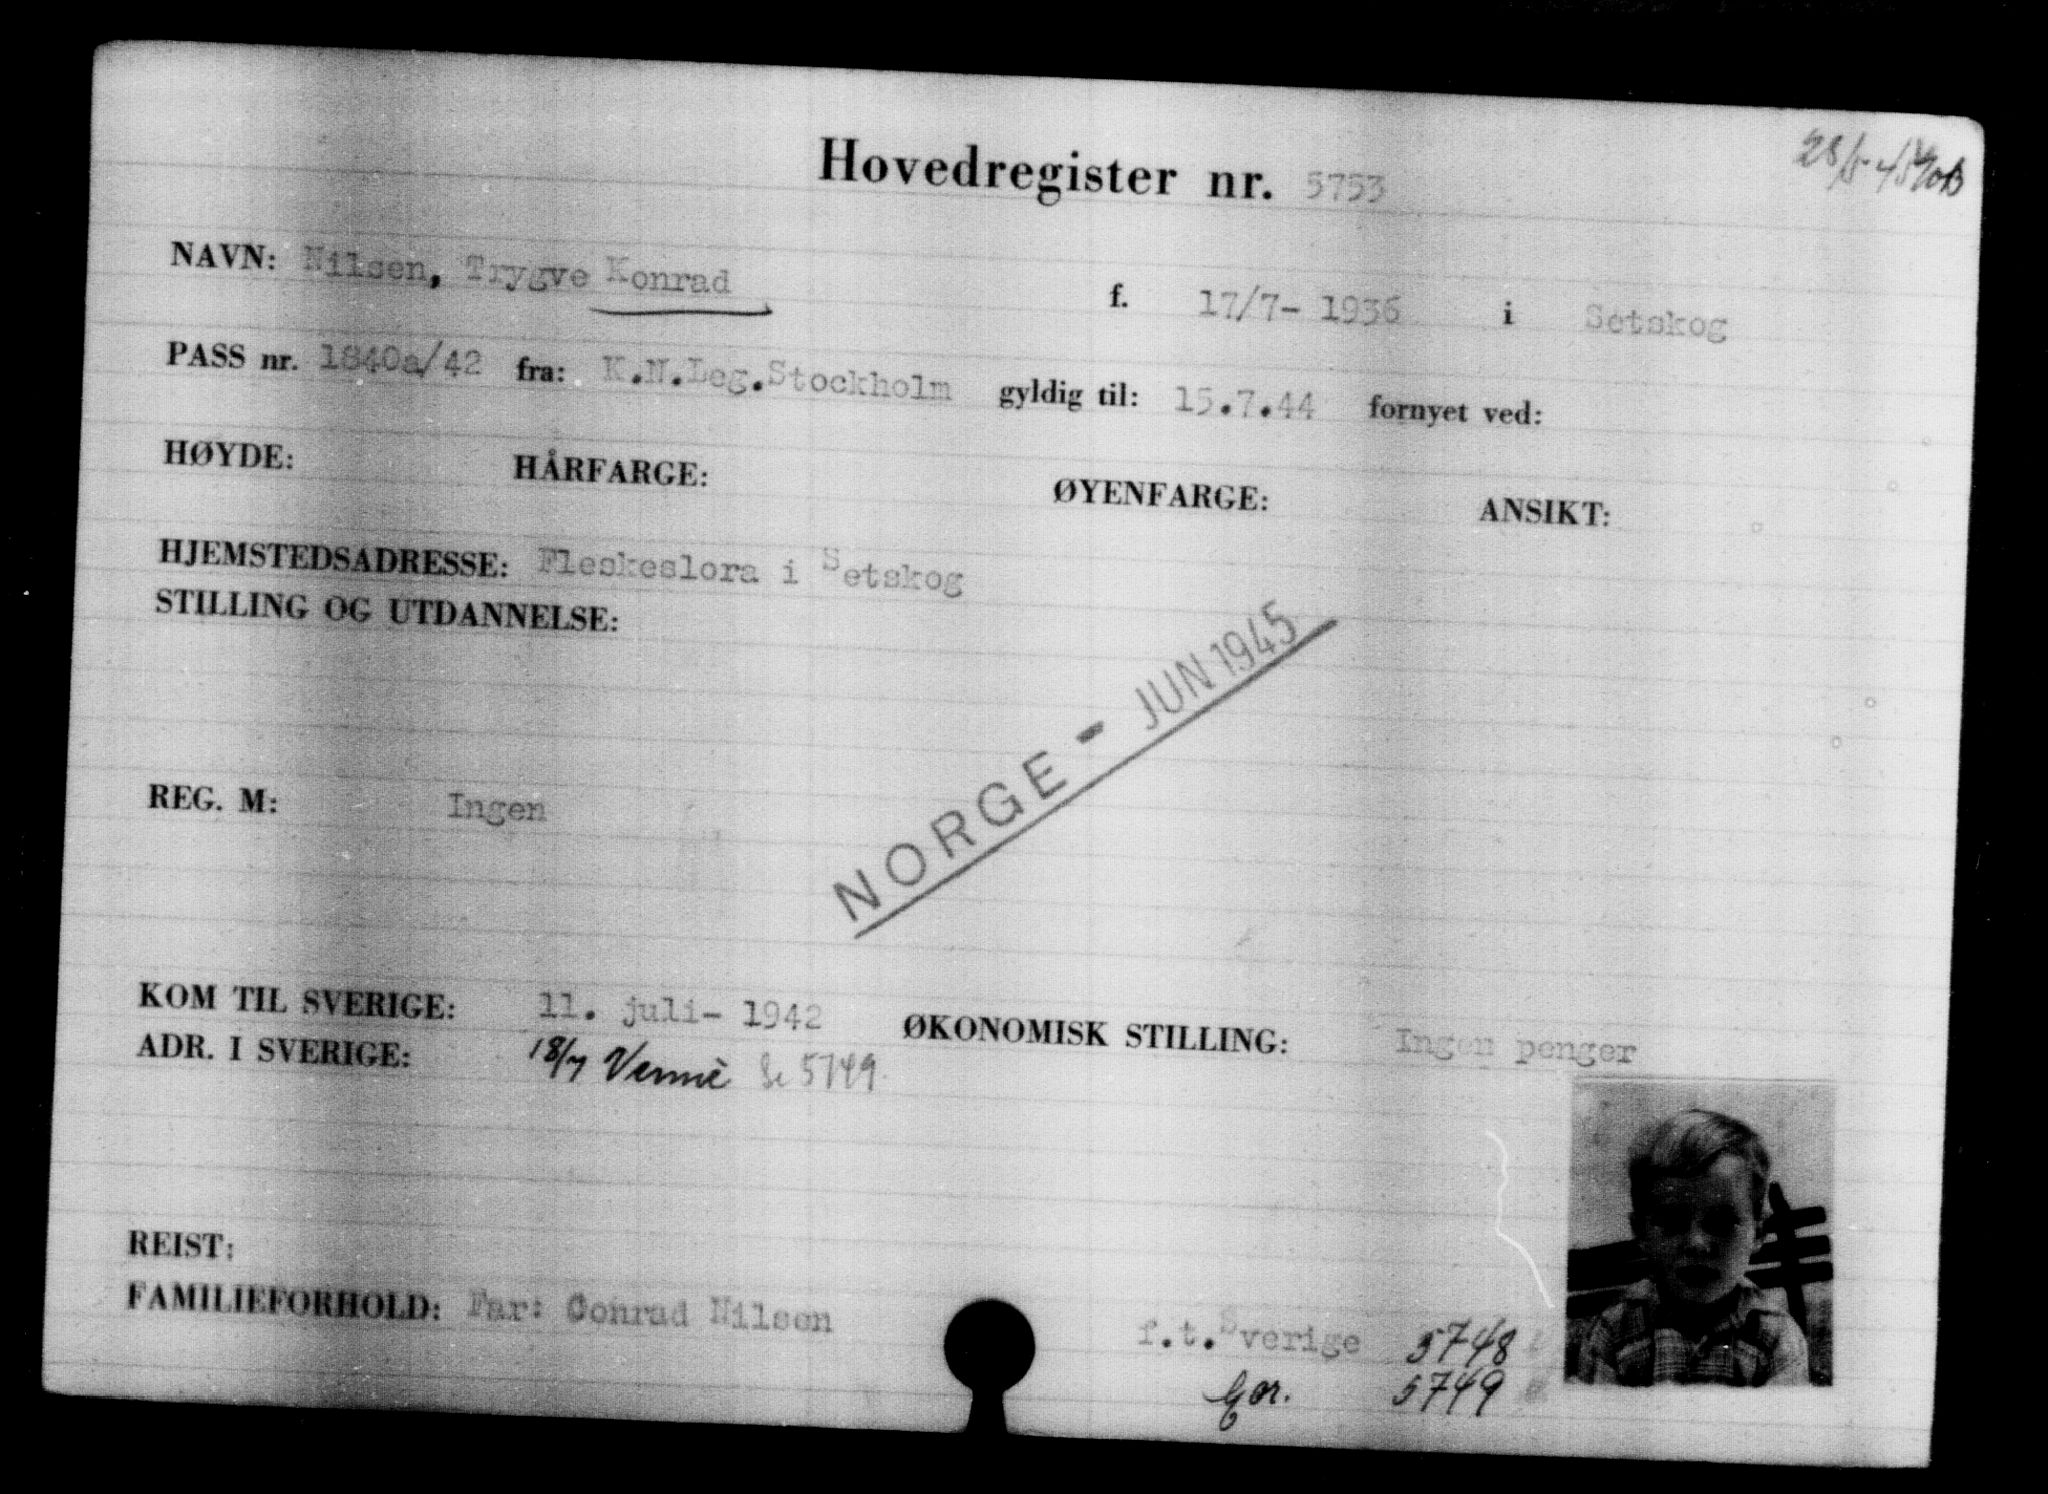 28/5-45
Hovedregister nr. 5753
NAVN: Nilsen, Trygve Konrad f. 17/7- 1936 i Setskog
PASS nr. 1840a/42 fra: K.N.Leg.Stockholm gyldig til: 15.7.44 fornyet ved:
HØYDE: HÅRFARGE: ØYENFARGE: ANSIKT:
HJEMSTEDSADRESSE: Fleskeslora i Setskog
STILLING OG UTDANNELSE:
NORGE - JUN 1945
REG. M: Ingen
KOM TIL SVERIGE: 11. juli- 1942 ØKONOMISK STILLING: Ingen penger
ADR. I SVERIGE: 18/7 Se 5749
REIST:
FAMILIEFORHOLD: Far: Conrad Nilsen f.t.Sverige 5748
5749